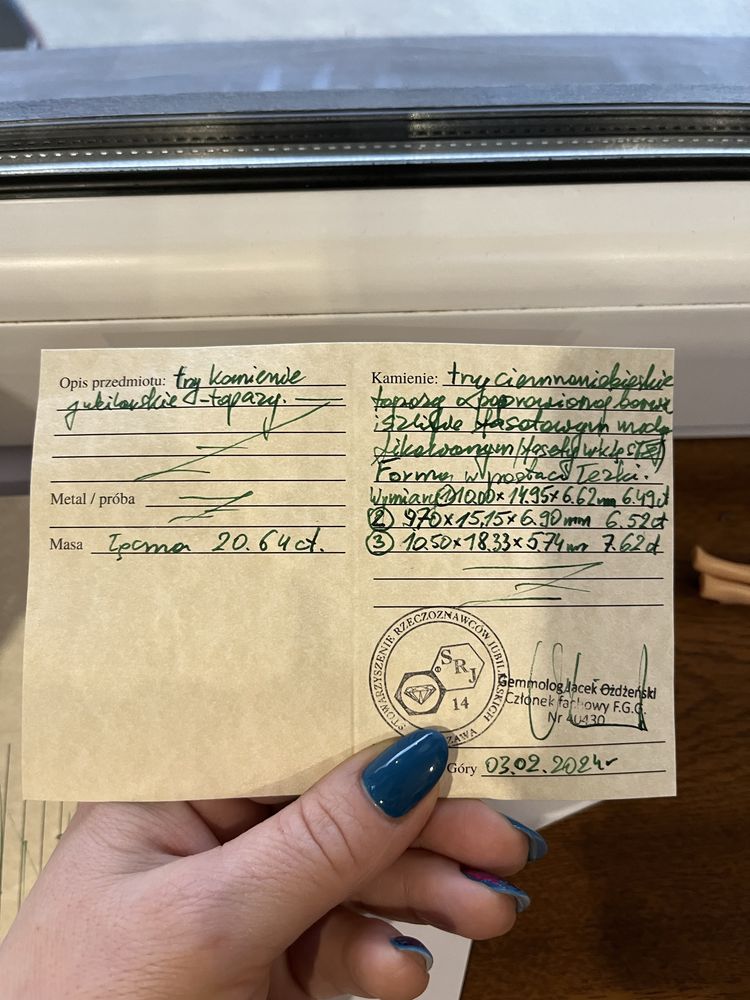 Opis przedmiotu: trzy kamienie
jubilerskie - topazy.
Metal / próba
Masa Łączna 20.64 ct.
Kamienie: trzy ciemnoniebieskie
topazy o poprawionej barwie
i szlifie fasetowym mody-
fikowanym (fasety wklęsłe)
Forma w postaci łezki.
Wymiary ① 10.00 x 14.95 x 6.62 mm 6.49 ct
② 9.70 x 15.15 x 6.90 mm 6.52 ct
③ 10.50 x 18.33 x 5.74 mm 7.62 ct
STOWARZYSZENIE RZECZOZNAWCÓW JUBILERSKICH
SRJ
14
Gemmolog Jacek Ożdżeński
Członek fachowy F.G.G.
Nr 40430
Góry 03.02.2024r